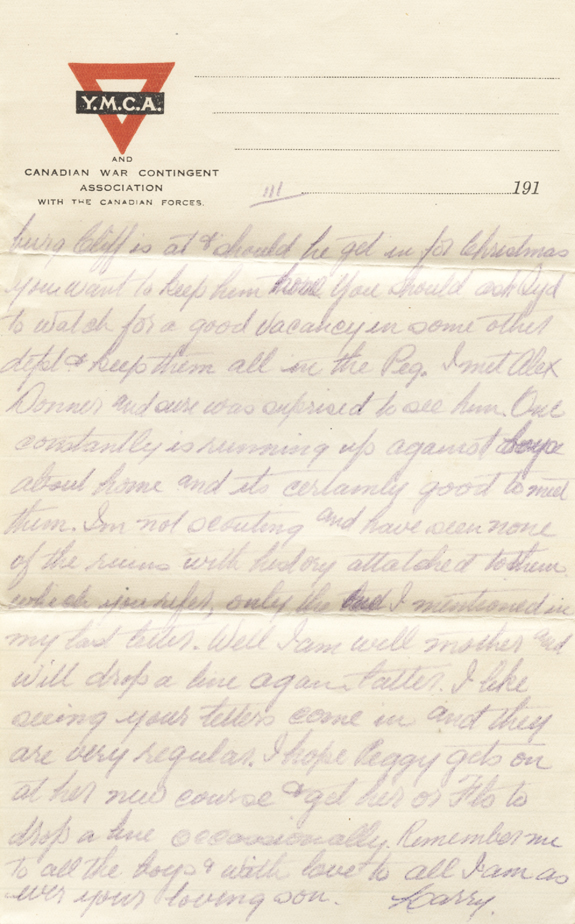 Y.M.C.A.
AND
CANADIAN WAR CONTINGENT
ASSOCIATION
WITH THE CANADIAN FORCES.
III 191
burg Cliff is at & should he get in for Christmas
you want to keep him there You should ask Syd
to watch for a good vacancy in some other
dept & keep them all in the Peg. I met Alex
Donner and sure was suprised to see him. One
constantly is running up against boys
about home and its certainly good to meet
them. Im not scouting and have seen none
of the ruins with history attatched to them
which you refer, only the one I mentioned in
my last letter. Well I am well mother and
will drop a line again latter. I like
seeing your letters come in and they
are very regular. I hope Peggy gets on
at her new course & get her or Flo to
drop a line occassionally. Remember me
to all the boys & with love to all I am as
ever your loving son. Harry